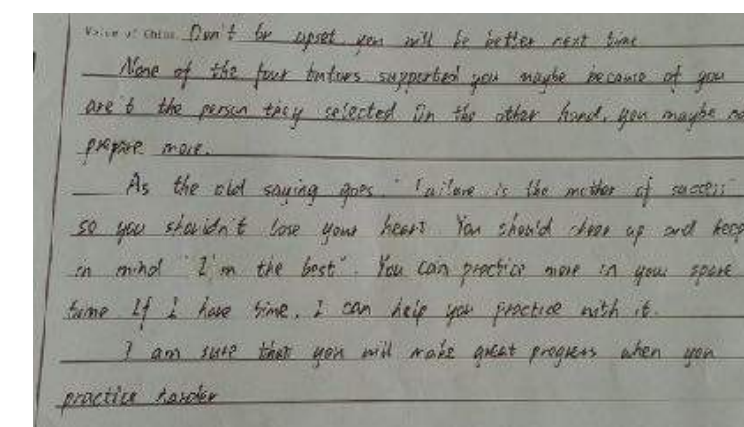 Voice of China. Don't be upset. you will be better next time
None of the four tutors supported you maybe because of you
are't the person they selected On the other hand, you maybe no
prepare more.
As the old saying goes "Failure is the mother of success"
so you shouldn't lose your heart. You should cheer up and keep
in mind "I'm the best". You can practice more in your spare
time If I have time, I can help you practice with it.
I am sure that you will make great progress when you
practice harder